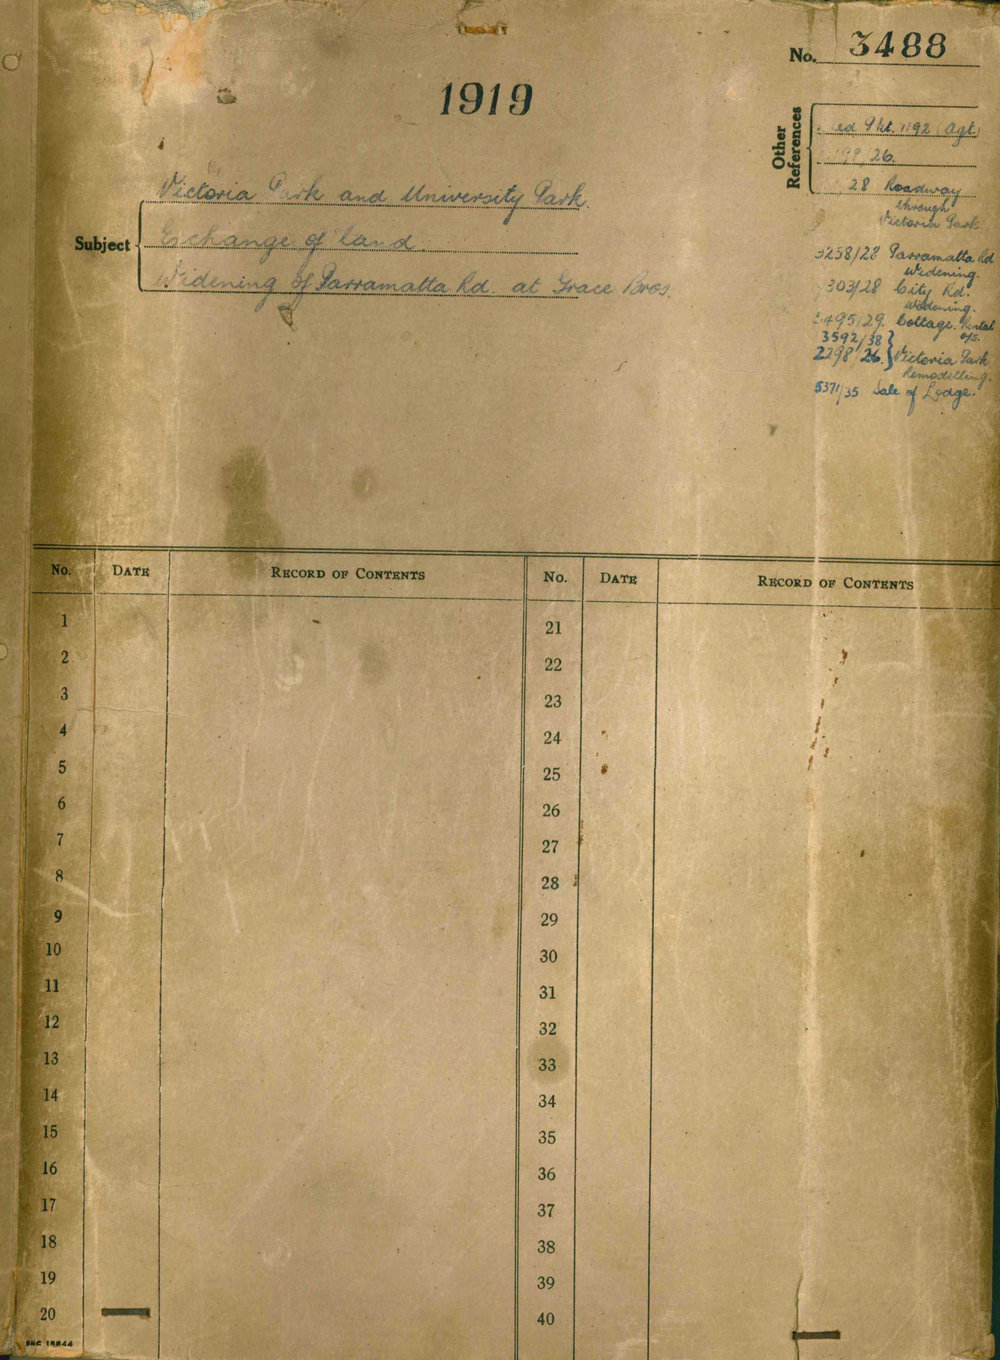 No. 3488
1919
Other References
Pkt. 1192 (Agt.)
98 26.
28 Roadway
through
Victoria Park
Subject
Victoria Park and University Park.
Exchange of land.
Widening of Parramatta Rd. at Grace Bros.
3258/28 Parramatta Rd
Widening.
303/28 City Rd.
Widening.
3495/29. Cottage. Rental
3592/38
2298/26. Victoria Park
Remodelling.
5371/35 Sale of Lodge.
No. DATE RECORD OF CONTENTS No. DATE RECORD OF CONTENTS
1 21
2 22
3 23
4 24
5 25
6 26
7 27
8 28
9 29
10 30
11 31
12 32
13 33
14 34
15 35
16 36
17 37
18 38
19 39
20 40